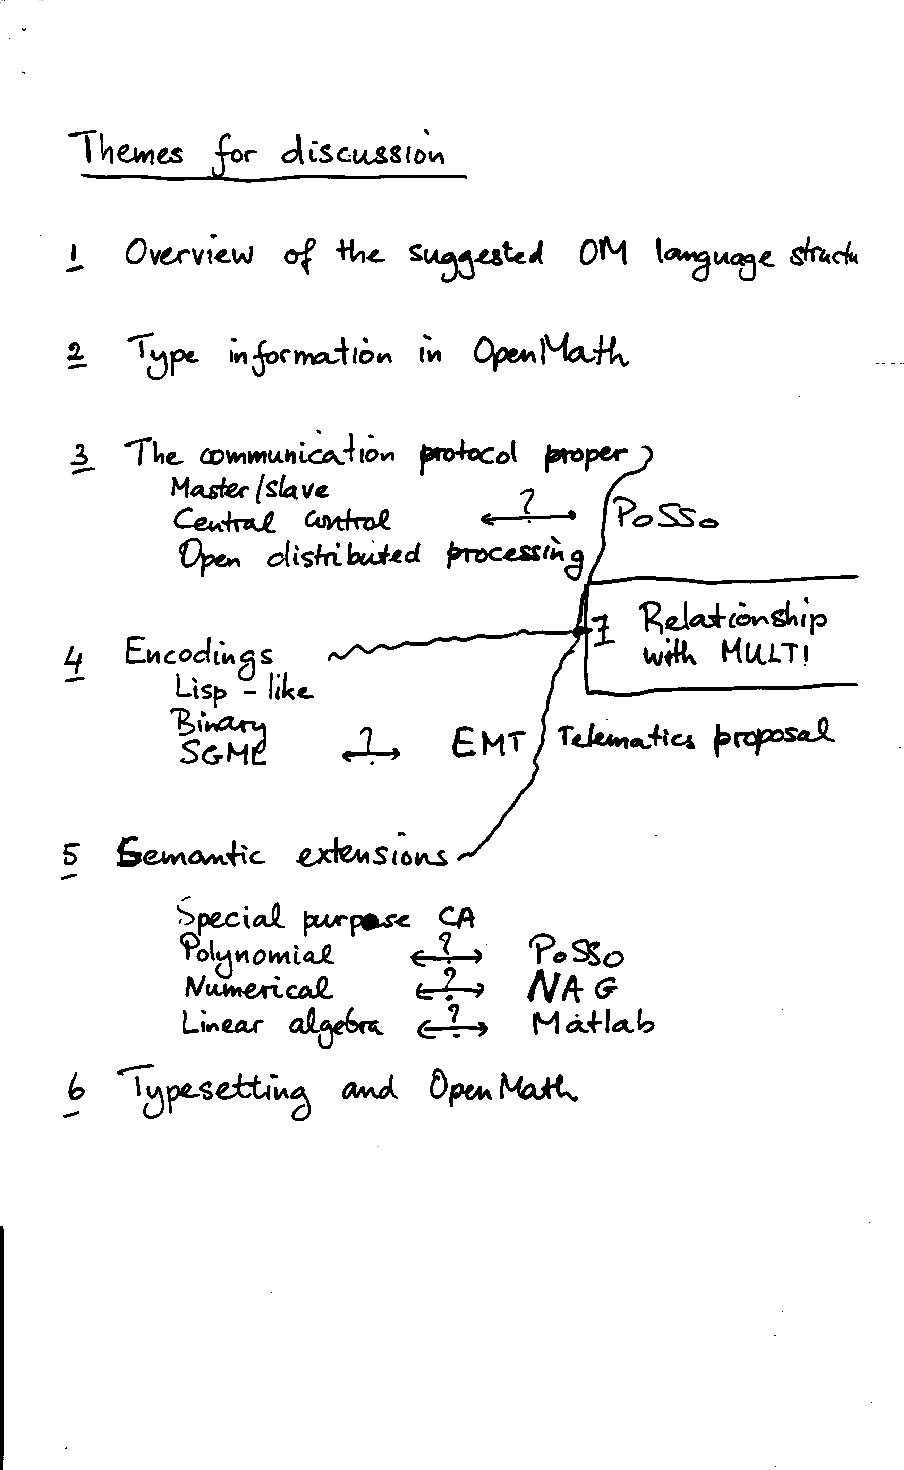 Themes for discussion
1 Overview of the suggested OM language structu
2 Type information in OpenMath
3 The communication protocol proper
Master/slave
Central control ? PoSSo
Open distributed processing
7 Relationship
with MULTI
4 Encodings
Lisp - like
Binary
SGML ? EMT Telematics proposal
5 Semantic extensions
Special purpose CA
Polynomial ? PoSSo
Numerical ? NAG
Linear algebra ? Matlab
6 Typesetting and OpenMath